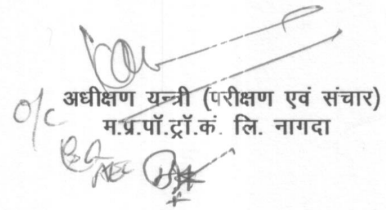 O/C अधीक्षण यन्त्री (परीक्षण एवं संचार)
म.प्र.पॉ.ट्रॉ.कं. लि. नागदा